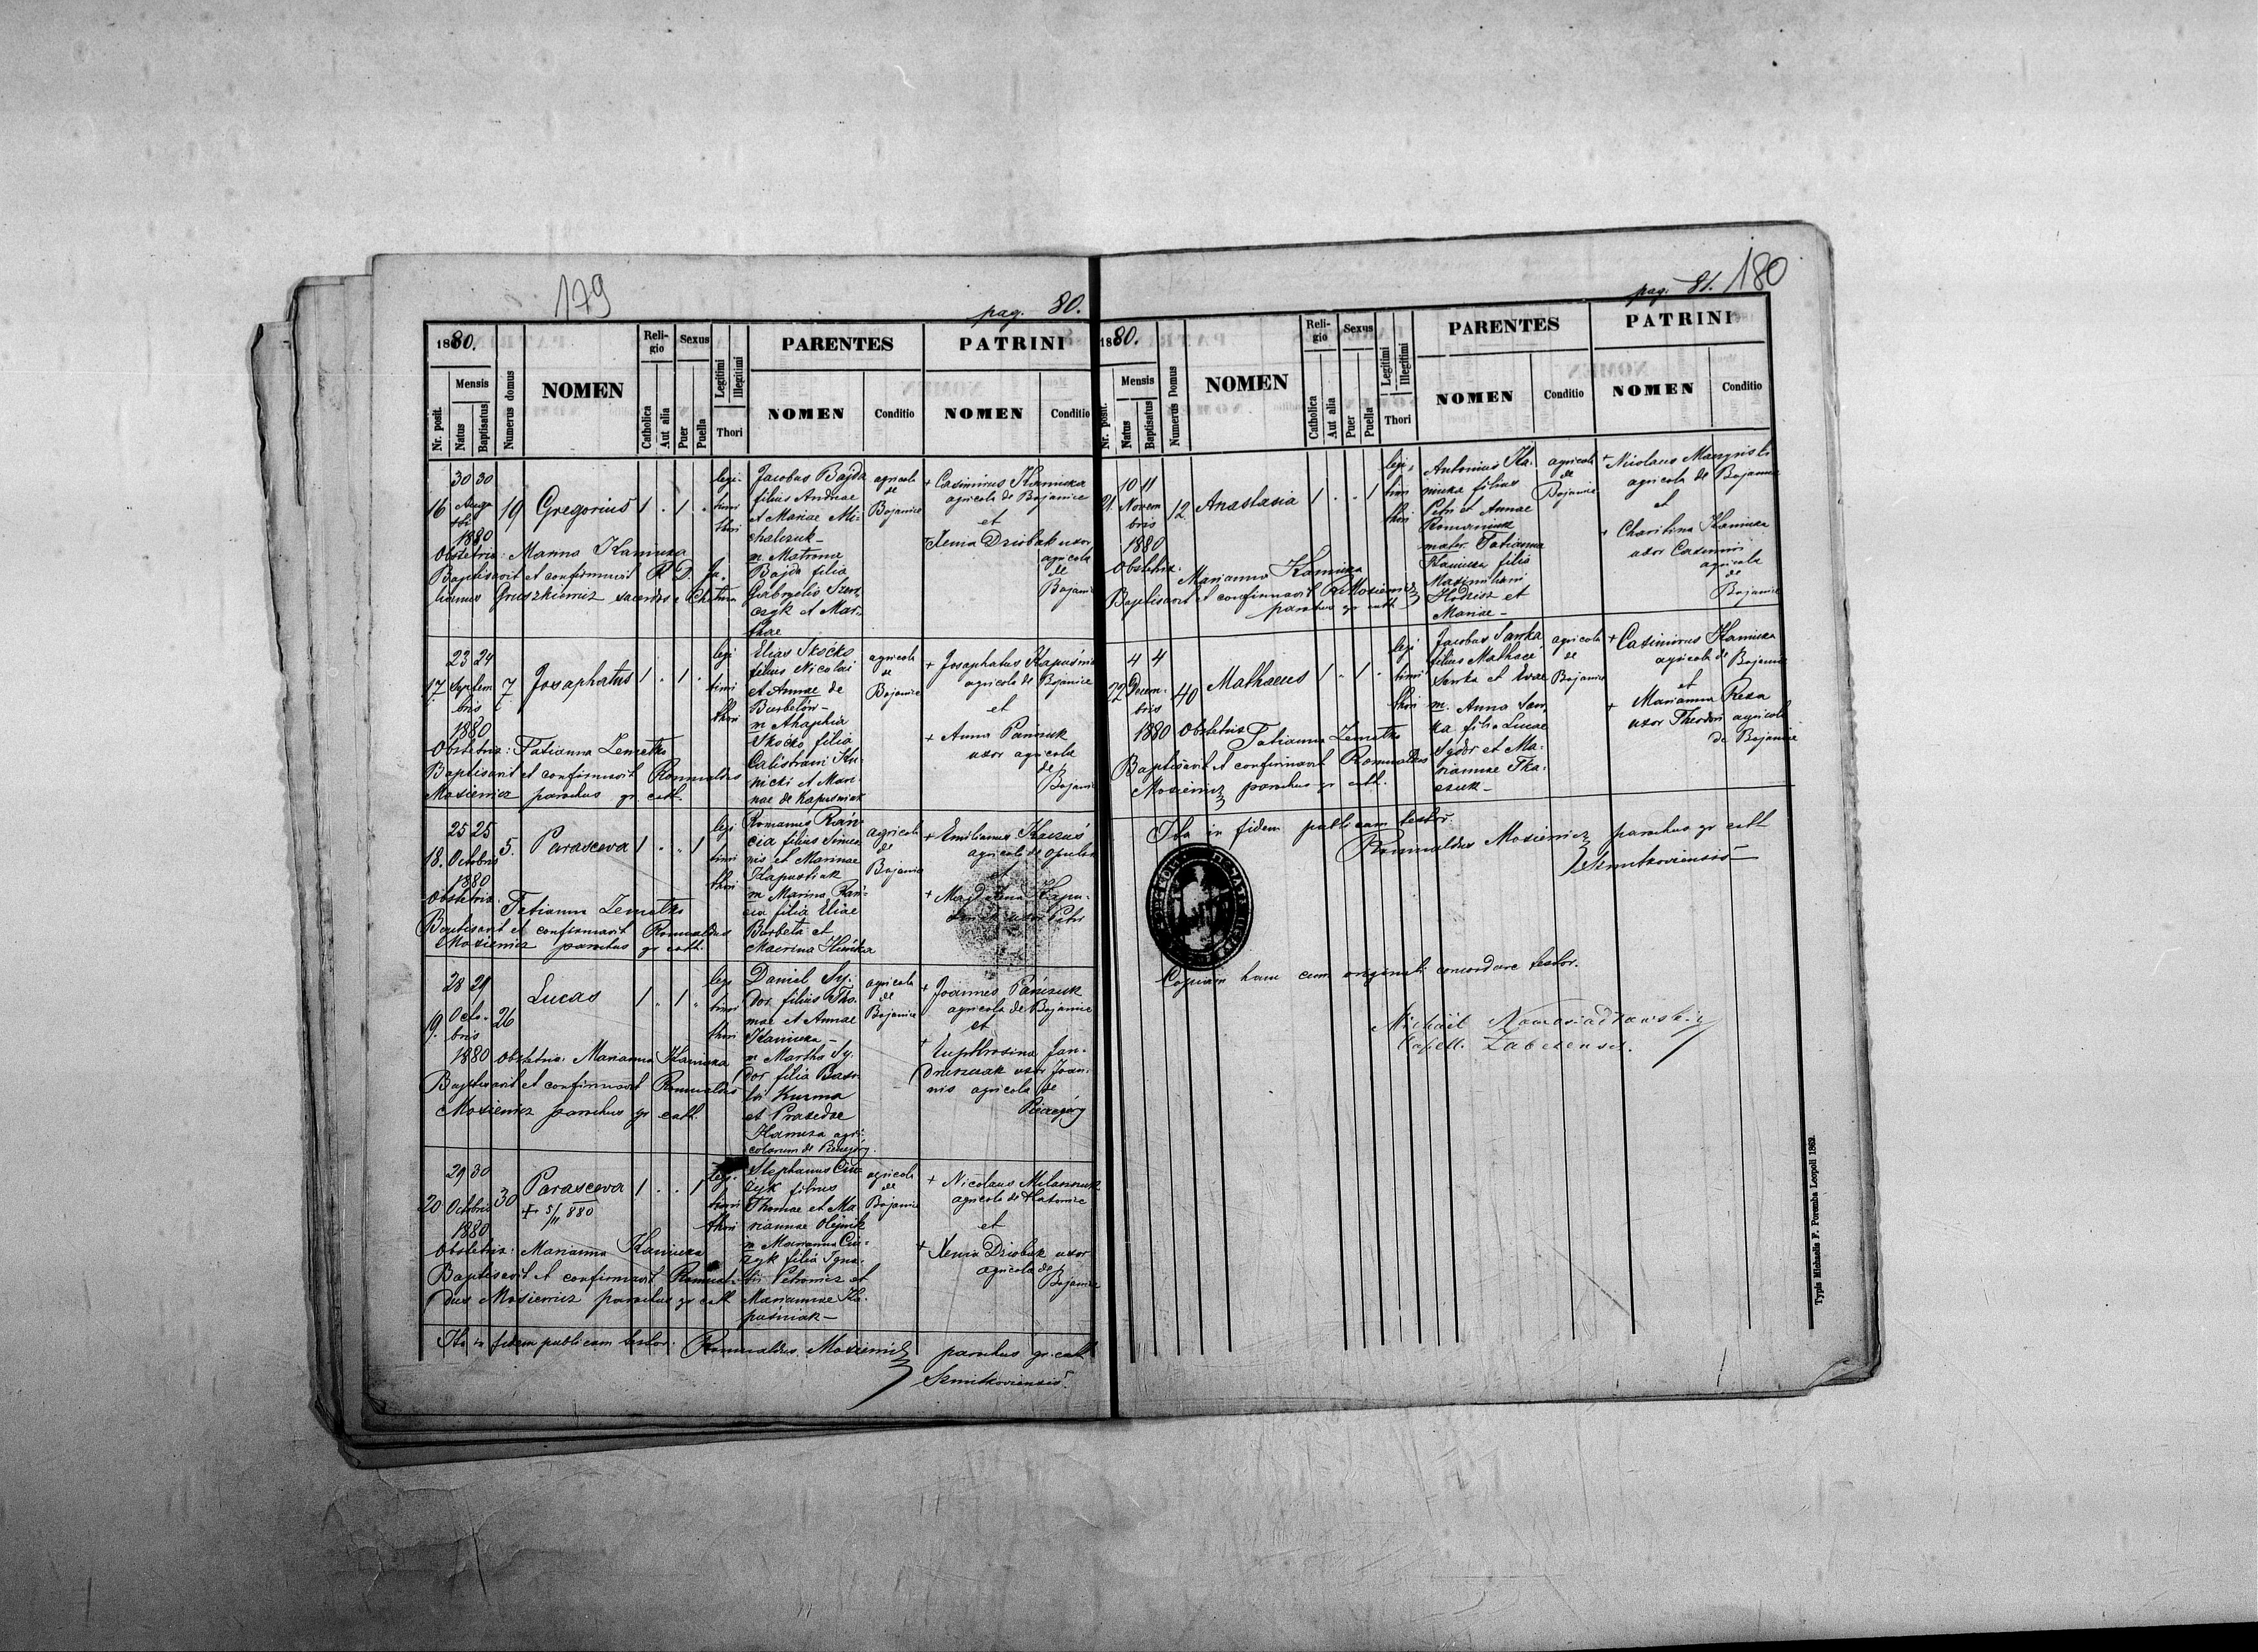 179
pag. 80.
1880.
Nr. posit.
Mensis
Natus
Baptisatus
Numerus domus
NOMEN
Religio
Catholica
Aut alia
Sexus
Puer
Puella
Legitimi
Illegitimi
Thori
PARENTES
NOMEN
Conditio
PATRINI
NOMEN
Conditio
30 30
16 Augusti
1880
19 Gregorius 1 . 1 .
legi-
timi
thori
Jacobus Bajda
filius Andreae
et Mariae Mi-
chalczuk -
m. Matrona
Bajda filia
Gabryelis Szew-
czyk et Mar-
thae
agricola
de
Bojanice
+ Casimirus Kaniuka
agricola de Bojanice
et
+ Xenia Dziobak uxor
agricola
de
Bojanice
Obstetrix: Marina Kaniuka
Baptisavit et confirmavit R. D. Ju-
lianus Gruszkiewicz sacerdos
23 24
17 Septem
bris
1880
7 Josaphatus 1 . 1 .
legi
timi
thori
Elias Skoćko
filius Nicolai
et Annae de
Burbelów -
m Ahaphia
Skoćko filia
Calistrani
nicki et Mari-
nae de Kapusniak
agricola
de
Bojanice
+ Josaphatus Kapuśniak
agricola de Bojanice
et
+ Anna Pańczuk
uxor agricola
de
Bojanice
Obstetrix: Tatianna Zemełko
Baptisavit et confirmavit Romualdus
Mosiewicz parochus gr. cath.
25 25
18. Octobris
1880
5. Parasceva 1 . . 1
legi
timi
thori
Romanus Rań-
cia filius Simeo-
nis et Marinae
Kapustiak
m Marina Rań-
cia filia Eliae
Burbela et
Marina
agricola
de
Bojanice
+ Emilianus
agricola de Opulsko
et
+ Magdalena Kapu-
uxor Petri
Obstetrix: Tatianna Zemełko
Baptisavit et confirmavit Romualdus
Mosiewicz parochus gr cath.
28 29
19. Octo-
bris
1880
26 Lucas 1 . 1 .
legi
timi
thori
Daniel Sy-
dor filius Tho-
mae et Annae
Kaniuka -
m Martha Sy-
dor filia Basi-
lii Kuzma
et Praxedae
Kaniuka agri-
colarum de
agricola
de
Bojanice
+ Joannes Pańczuk
agricola de Bojanice
et
+ Euphrosina Jan-
uxor Joan-
nis agricola de
Obstetrix: Marianna Kaniuka
Baptisavit et confirmavit Romualdus
Mosiewicz parochus gr cath.
29 30
20 Octobris
1880
30 Parasceva 1 . . 1
+ 5/11 880
legi-
timi
thori
Stephanus Ciu-
zyk filius
Thomae et Ma
riannae Olejnik
m Marianna Ciu-
zyk filia Igna-
tii Petrowicz et
Mariannae Ka-
puśniak -
agricola
de
Bojanice
+ Nicolaus Milaszczuk
agricola de Hatowice
et
+ Xenia Dziobak uxor
agricola de
Bojanice
Obstetrix: Marianna Kaniuka
Baptisavit et confirmavit Romual-
dus Mosiewicz parochus gr cath
Ita in fidem publicam testor. Romualdus Mosiewicz parochus gr. cath
Szmitkoviensis.
pag. 81. 180
1880.
Nr. posit.
Mensis
Natus
Baptisatus
Numerus Domus
NOMEN
Religio
Catholica
Aut alia
Sexus
Puer
Puella
Legitimi
Illegitimi
Thori
PARENTES
NOMEN
Conditio
PATRINI
NOMEN
Conditio
10 11
21. Novem
bris
1880
12. Anastasia 1 . . 1
legi-
timi
thori
Antonius Ka-
niuka filius
Petri et Annae
Romaniuk
mater Tatianna
Kaniuka filia
Maximiliani
et
Mariae -
agricola
de
Bojanice
+ Nicolaus
agricola de Bojanice
et
+ Charitina Kaniuka
uxor Casimiri
agricola
de
Bojanice
Obstetrix: Marianna Kaniuka
Baptisavit et confirmavit R. Mosiewicz
parochus gr cath
4 4
22 Decem-
bris
1880
40 Mathaeus 1 . 1 .
legi
timi
thori
Jacobus Sawka
filius Mathaei
Sawka et Evae
m. Anna Saw-
ka filia Lucae
Sydor et Ma-
riannae Tka-
czuk -
agricola
de
Bojanice
+ Casimirus Kaniuka
agricola de Bojanice
et
+ Marianna Reza
uxor Theodori agricola
de Bojanice
Obstetrix Tatianna Zemełko
Baptisavit et confirmavit Romualdus
Mosiewicz parochus gr cath.
Ita in fidem publicam testor.
Romualdus Mosiewicz parochus gr cath
Szmitkoviensis
Copiam hanc cum originali concordare testor.
Michaël
Capell.
Typis Michaelis F. Poremba Leopoli 1862.